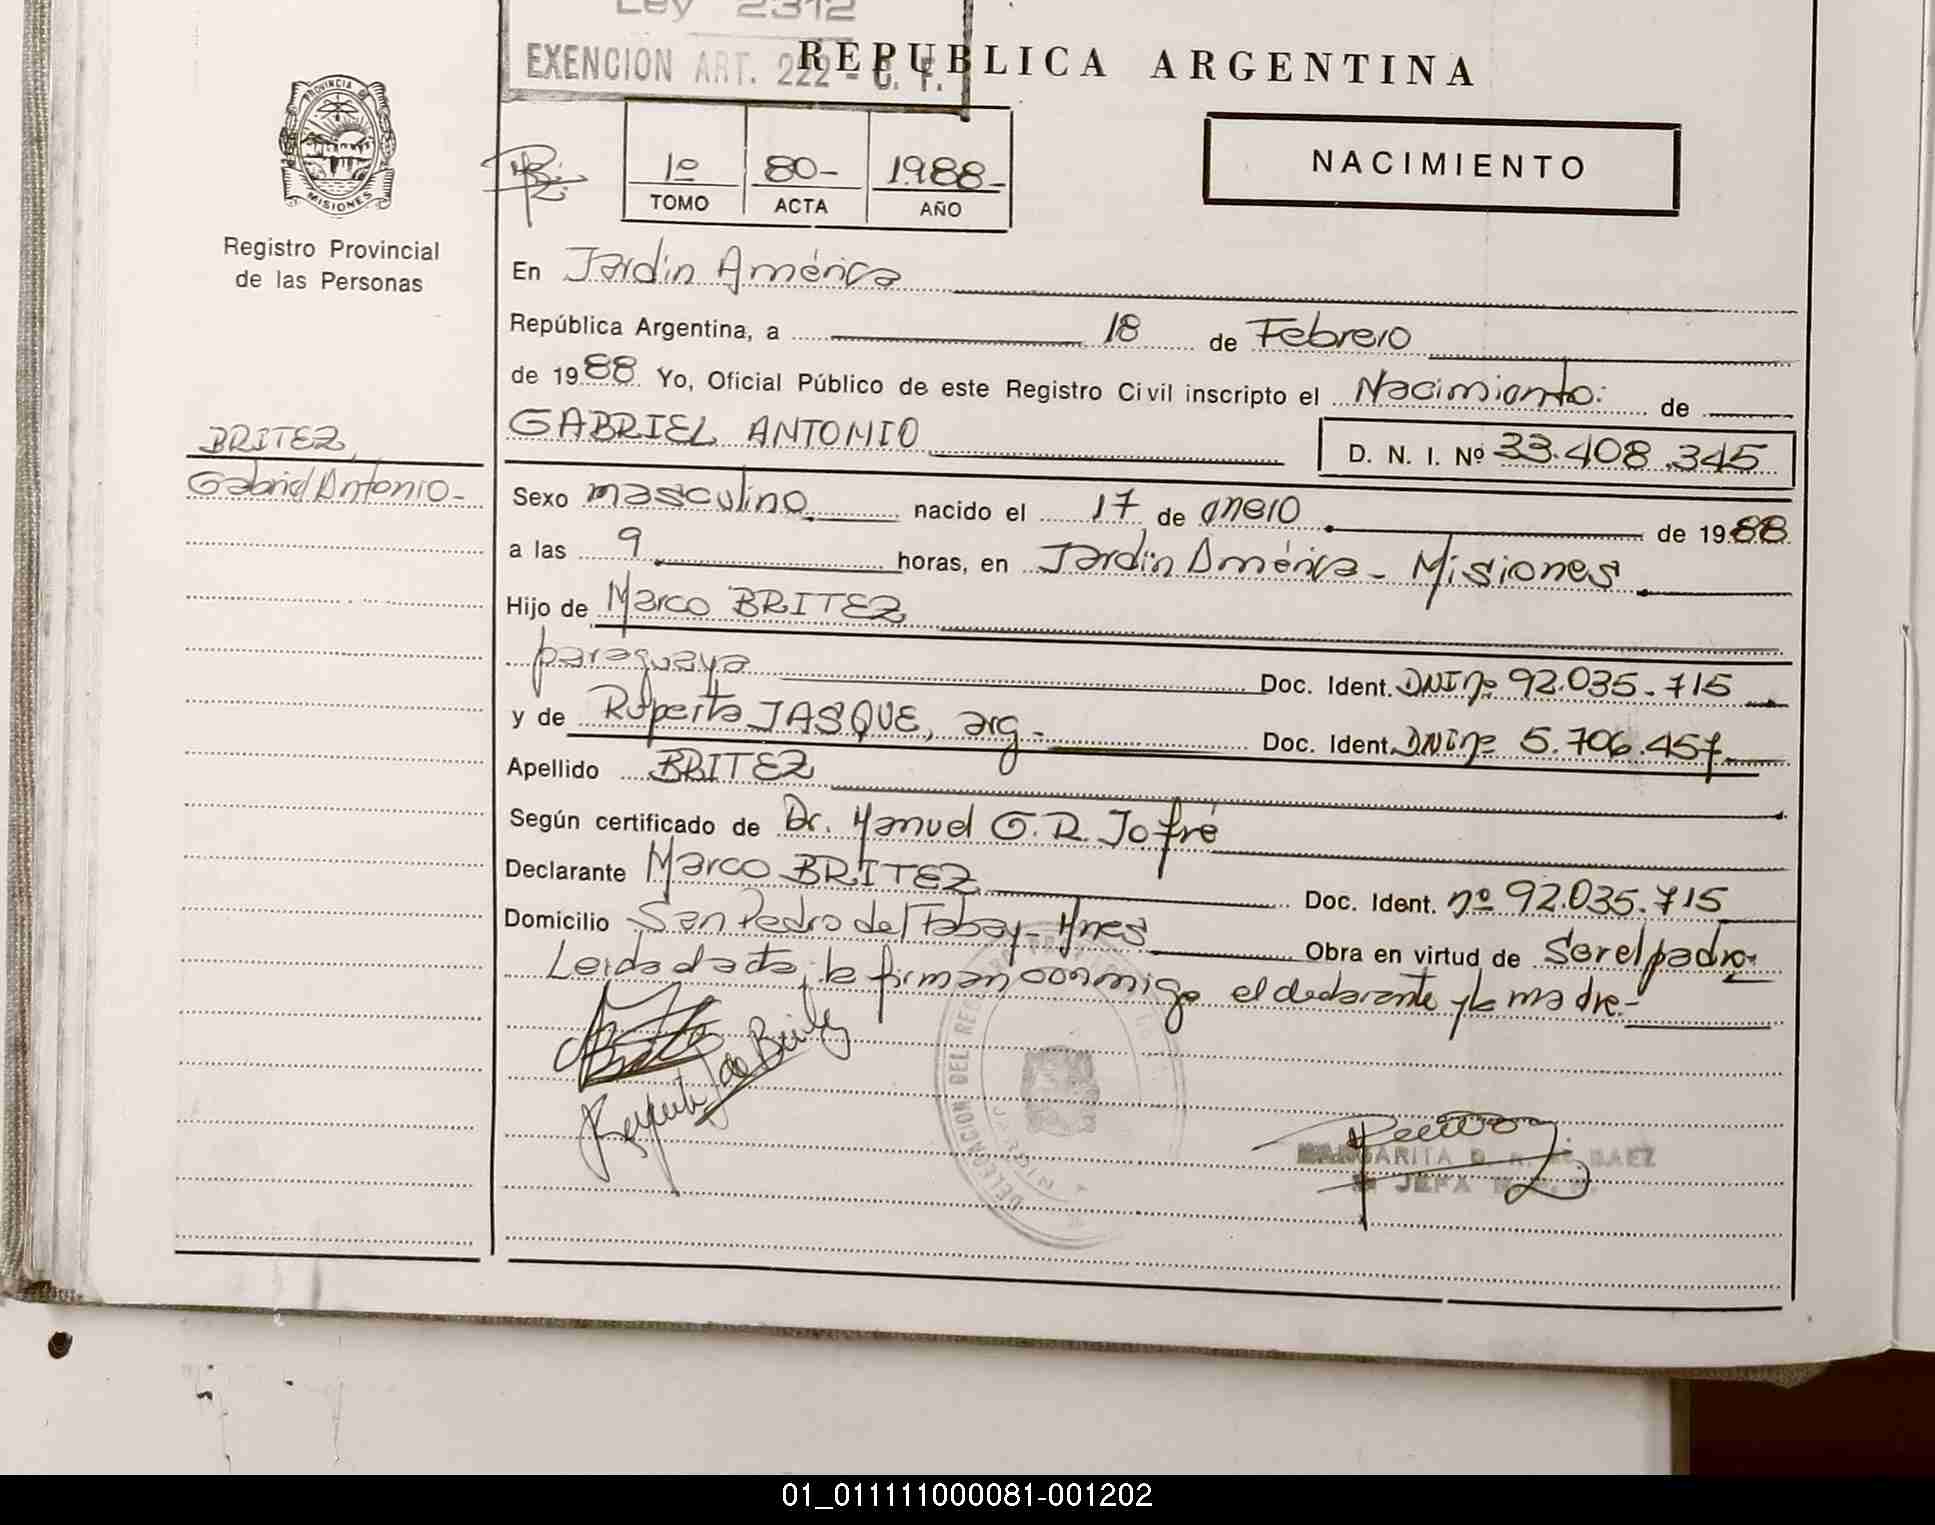 Ley 2312
EXENCION ART. 222 - C. F.
REPUBLICA ARGENTINA
PROVINCIA DE
MISIONES
Registro Provincial
de las Personas
1º 80- 1988-
TOMO ACTA AÑO
NACIMIENTO
En Jardin América
República Argentina, a 18 de Febrero
de 1988. Yo, Oficial Público de este Registro Civil inscripto el Nacimiento: de
GABRIEL ANTONIO D. N. I. Nº 33.408.345
BRITEZ,
Gabriel Antonio-
Sexo masculino nacido el 17 de enero de 1988
a las 9 horas, en Jardin América - Misiones
Hijo de Marco BRITEZ
paraguaya Doc. Ident. DNI nº 92.035.715
y de Ruperta JASQUE, arg.- Doc. Ident. DNI nº 5.706.457
Apellido BRITEZ
Según certificado de Dr. Manuel G. R. Jofré
Declarante Marco BRITEZ Doc. Ident. nº 92.035.715
Domicilio San Pedro del Tabay- Mnes Obra en virtud de Ser el padre-
Leida el acta, la firman conmigo el declarante y la madre.-
DELEGACION DEL REG
MARGARITA BAEZ
JEFA
01_011111000081-001202